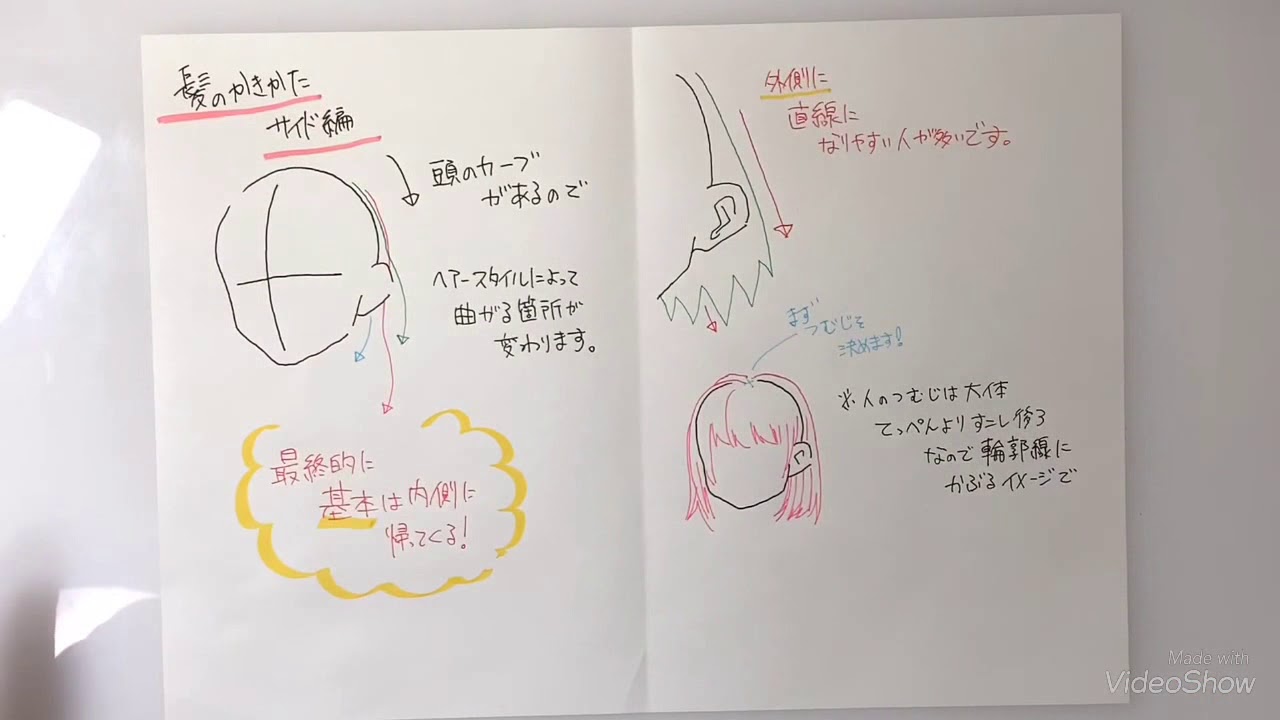 髪のかきかた
サイド編
頭のカーブ
があるので
ヘアースタイルによって
曲がる箇所が
変わります。
最終的に
基本は内側に
帰ってくる!
外側に
直線に
なりやすい人が多いです。
まず
つむじを
決めます!
※人のつむじは大体
てっぺんよりすこし後ろ
なので輪郭線に
かぶるイメージで
Made with
VideoShow